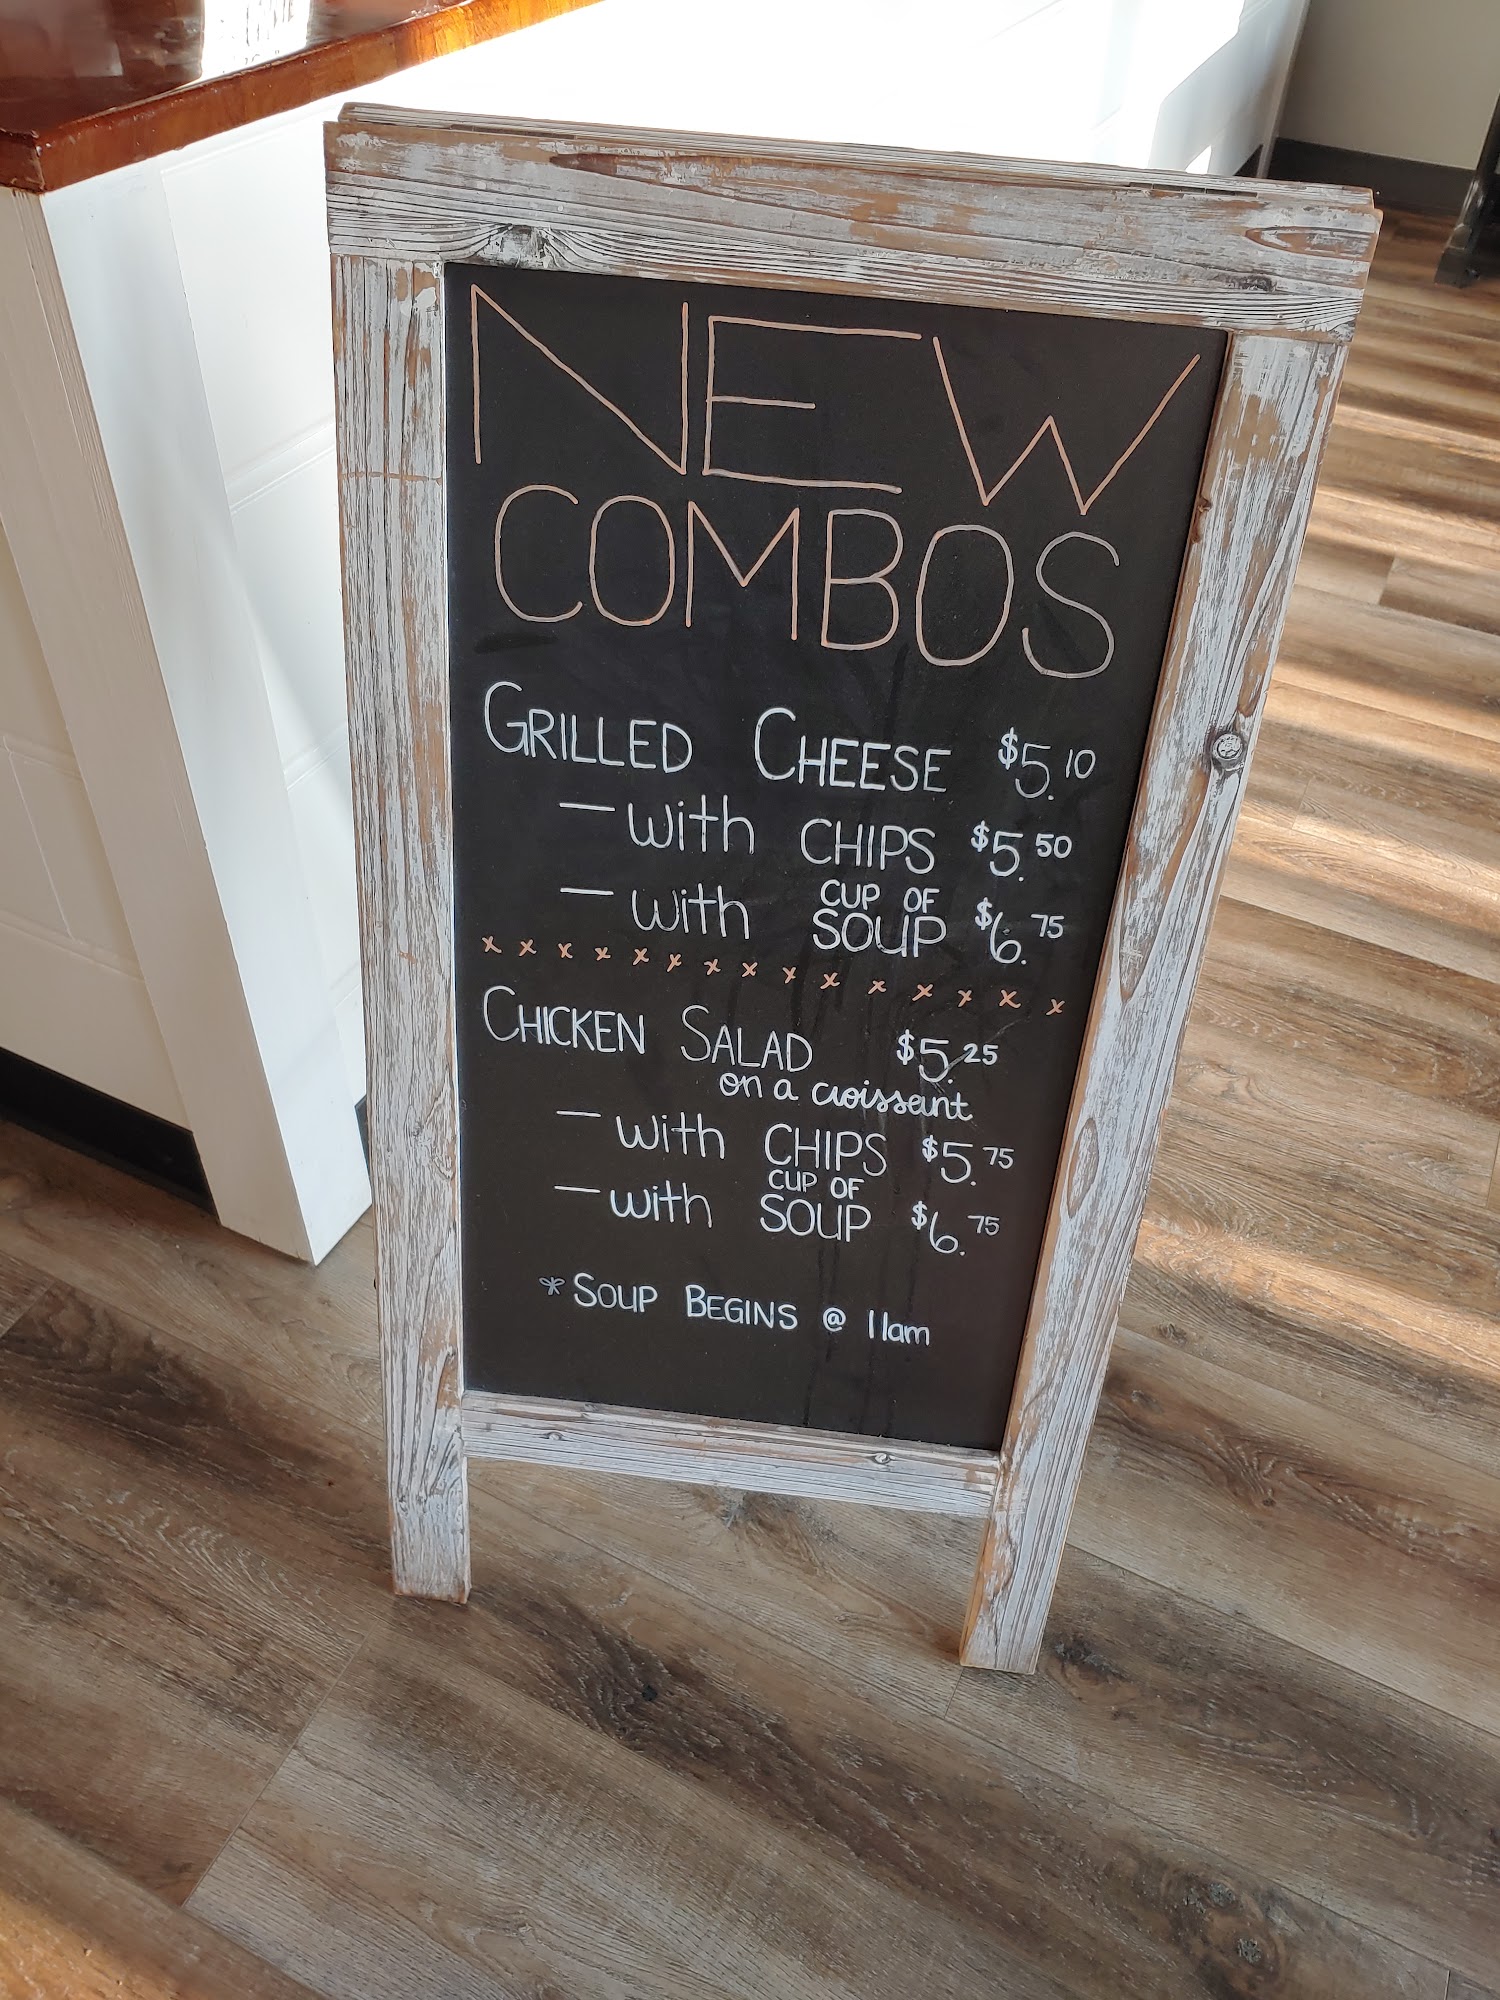 NEW
COMBOS
GRILLED CHEESE $5.10
— with CHIPS $5.50
— with CUP OF SOUP $6.75
x x x x x x x x x x x x x x x
CHICKEN SALAD $5.25
on a croissant
— with CHIPS $5.75
— with CUP OF SOUP $6.75
* SOUP BEGINS @ 11am